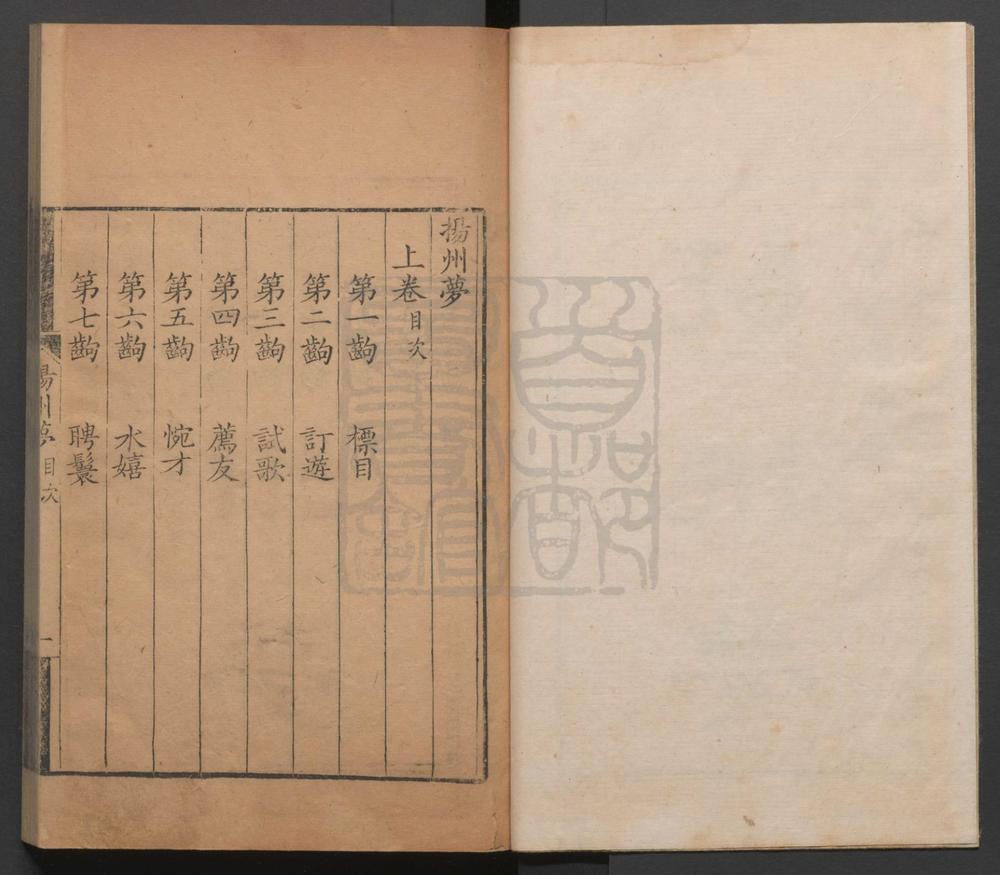 揚州夢
上卷目次
第一齣 標目
第二齣 訂遊
第三齣 試歌
第四齣 薦友
第五齣 惋才
第六齣 水嬉
第七齣 聘鬟
揚州夢 目次 一
京都大學圖書館